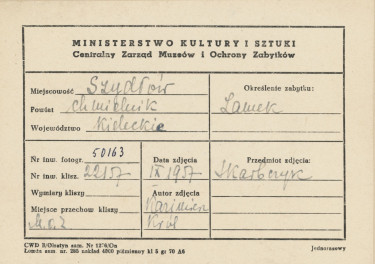 MINISTERSTWO KULTURY I SZTUKI
Centralny Zarząd Muzeów i Ochrony Zabytków
Miejscowość Szydłów
Powiat chmielnik
Województwo Kieleckie
Określenie zabytku:
Zamek
Nr inw. fotogr. 50163
Nr inw. klisz. 22157
Wymiary kliszy
Miejsce przechow kliszy
Data zdjęcia
IX 1957
Autor zdjęcia
Kazimierz
Król
Przedmiot zdjęcia:
Skarbczyk
CWD B/Olsztyn zam. Nr 1276/On
Łomża zam. nr. 285 nakład 4000 półmiazmy kl 5 gr 70 A6
Jednorazowy